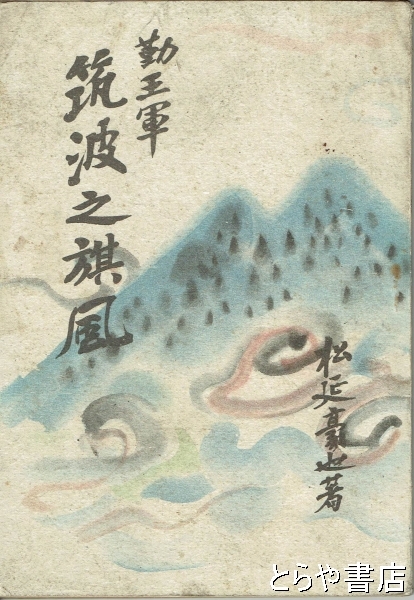 勤王軍
筑波之旗風
松延豪也著
とらや書店